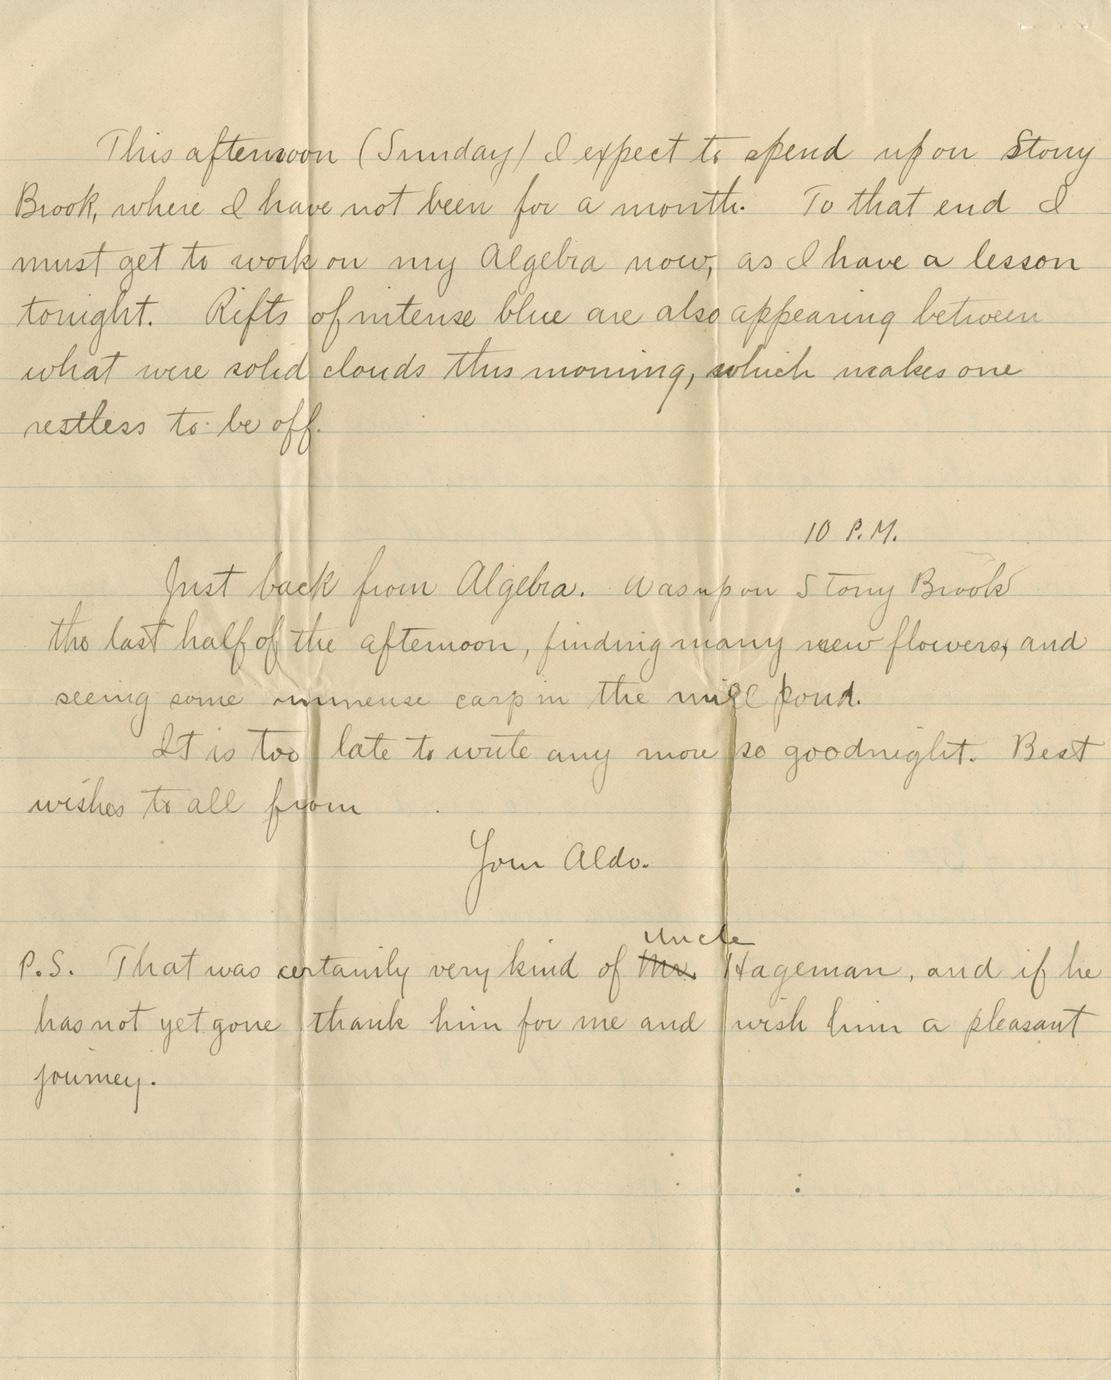 This afternoon (Sunday) I expect to spend upon Stony
Brook, where I have not been for a month. To that end I
must get to work on my Algebra now, as I have a lesson
tonight. Rifts of intense blue are also appearing between
what were solid clouds this morning, which makes one
restless to be off.
10 P.M.
Just back from Algebra. Was upon Stony Brook
the last half of the afternoon, finding many new flowers, and
seeing some immense carp in the mill pond.
It is too late to write any more so goodnight. Best
wishes to all from
Your Aldo.
Uncle
P.S. That was certainly very kind of Mr. Hageman, and if he
has not yet gone thank him for me and wish him a pleasant
journey.